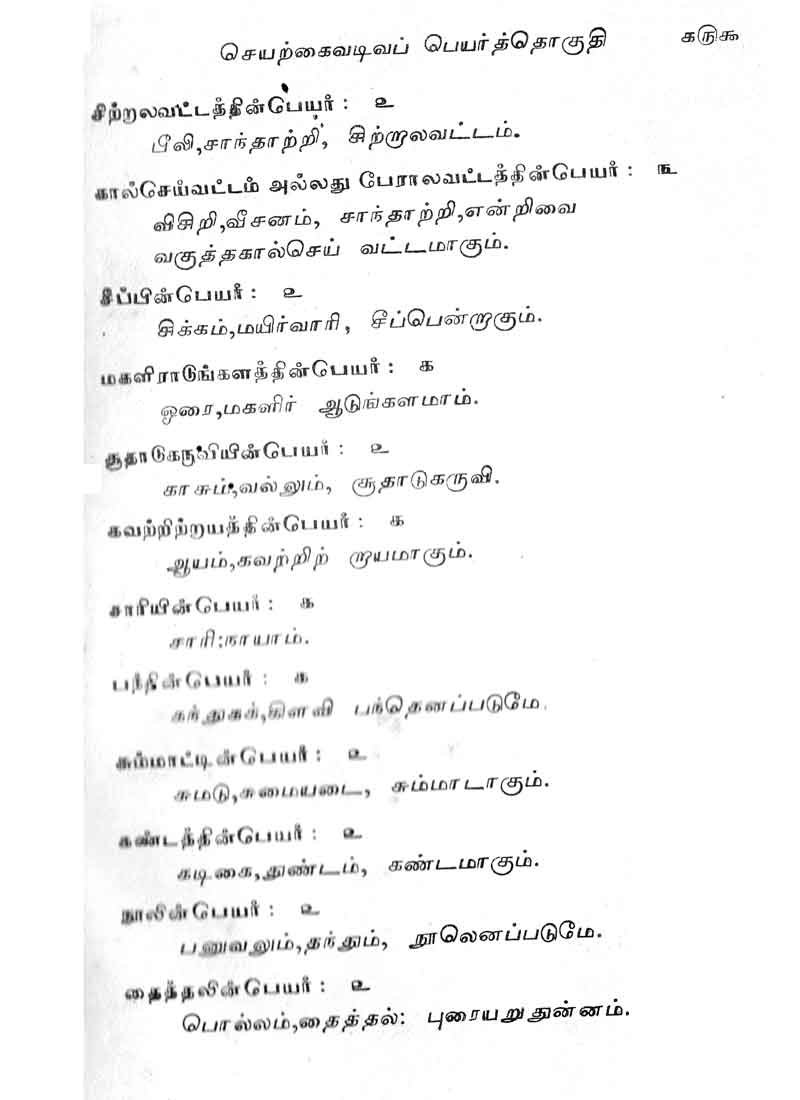 செயற்கைவடிவப் பெயர்த்தொகுதி கருகூ
சிற்றலவட்டத்தின்பெயர் : உ
பீலி,சாந்தாற்றி, சிற்றாலவட்டம்.
கால்செய்வட்டம் அல்லது பேராலவட்டத்தின்பெயர் : ங
விசிறி,வீசனம், சாந்தாற்றி,என்றிவை
வகுத்தகால்செய் வட்டமாகும்.
சீப்பின்பெயர் : உ
சிக்கம்,மயிர்வாரி, சீப்பென்றாகும்.
மகளிராடுங்களத்தின்பெயர் : க
ஓரை,மகளிர் ஆடுங்களமாம்.
சூதாடுகருவியின்பெயர் : உ
காசும்,வல்லும், சூதாடுகருவி.
கவற்றிற்றாயத்தின்பெயர் : க
ஆயம்,கவற்றிற் றாயமாகும்.
சாரியின்பெயர் : க
சாரி:நாயாம்.
பந்தின்பெயர் : க
கந்துகக்,கிளவி பந்தெனப்படுமே.
சும்மாட்டின்பெயர் : உ
சுமடு,சுமையடை, சும்மாடாகும்.
கண்டத்தின்பெயர் : உ
கடிகை,துண்டம், கண்டமாகும்.
நூலின்பெயர் : உ
பனுவலும்,தந்தும், நூலெனப்படுமே.
தைத்தலின்பெயர் : உ
பொல்லம்,தைத்தல்: புரையறுதுன்னம்.